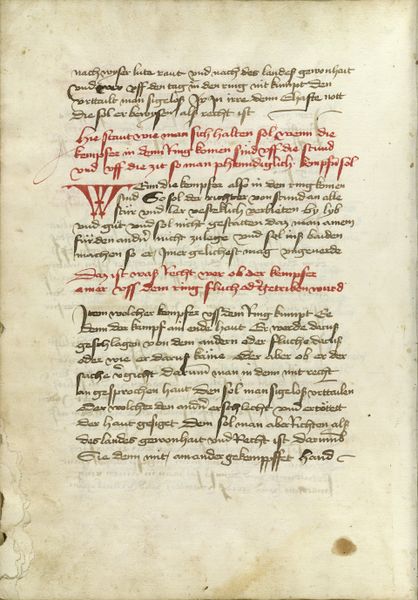 nach wyser lüte raut und nach des landes gewonhait
und wer uff den tag in den ring nit kumpt den
urttailt man sigeloß Jr in irre denn Ehafte nott
die sol er bewysen als recht ist
Hie staut wie man sich halten sol wenn die
kempfer in den Ring komen sind uff die stund
und uff die zit so man kempffen sol
Wenn die kempfer also in den ring komen
sind So sol der richter von stund an alle
stür und ler vesteklich verbieten by lyb
und gůt und sol nicht gestatten das man ainem
für den andern nicht zulege und sol ins baiden
machen so er jmer gelichest mag ungeverde
Das ist was Recht wer ob der kempfer
ainer uss dem ring fluch oder getriben wurd
Item welcher kempfer uss dem Ring kumpt Ee
denn der kampf ain ende haut Er werde darus
geschlagen von dem andern oder fluche darus
oder wie er darus käme Oder aber ob er der
sache vergicht darumb man in denn mit recht
angesprochen haut den sol man sigeloß urttailen
Oder wölcher den andern erschlecht und ertöttet
der haut gesiget Dem sol man aber Richten als
des landes gewonhait und Recht ist darumb
Sie denn mit ain ander gekempffet Haind